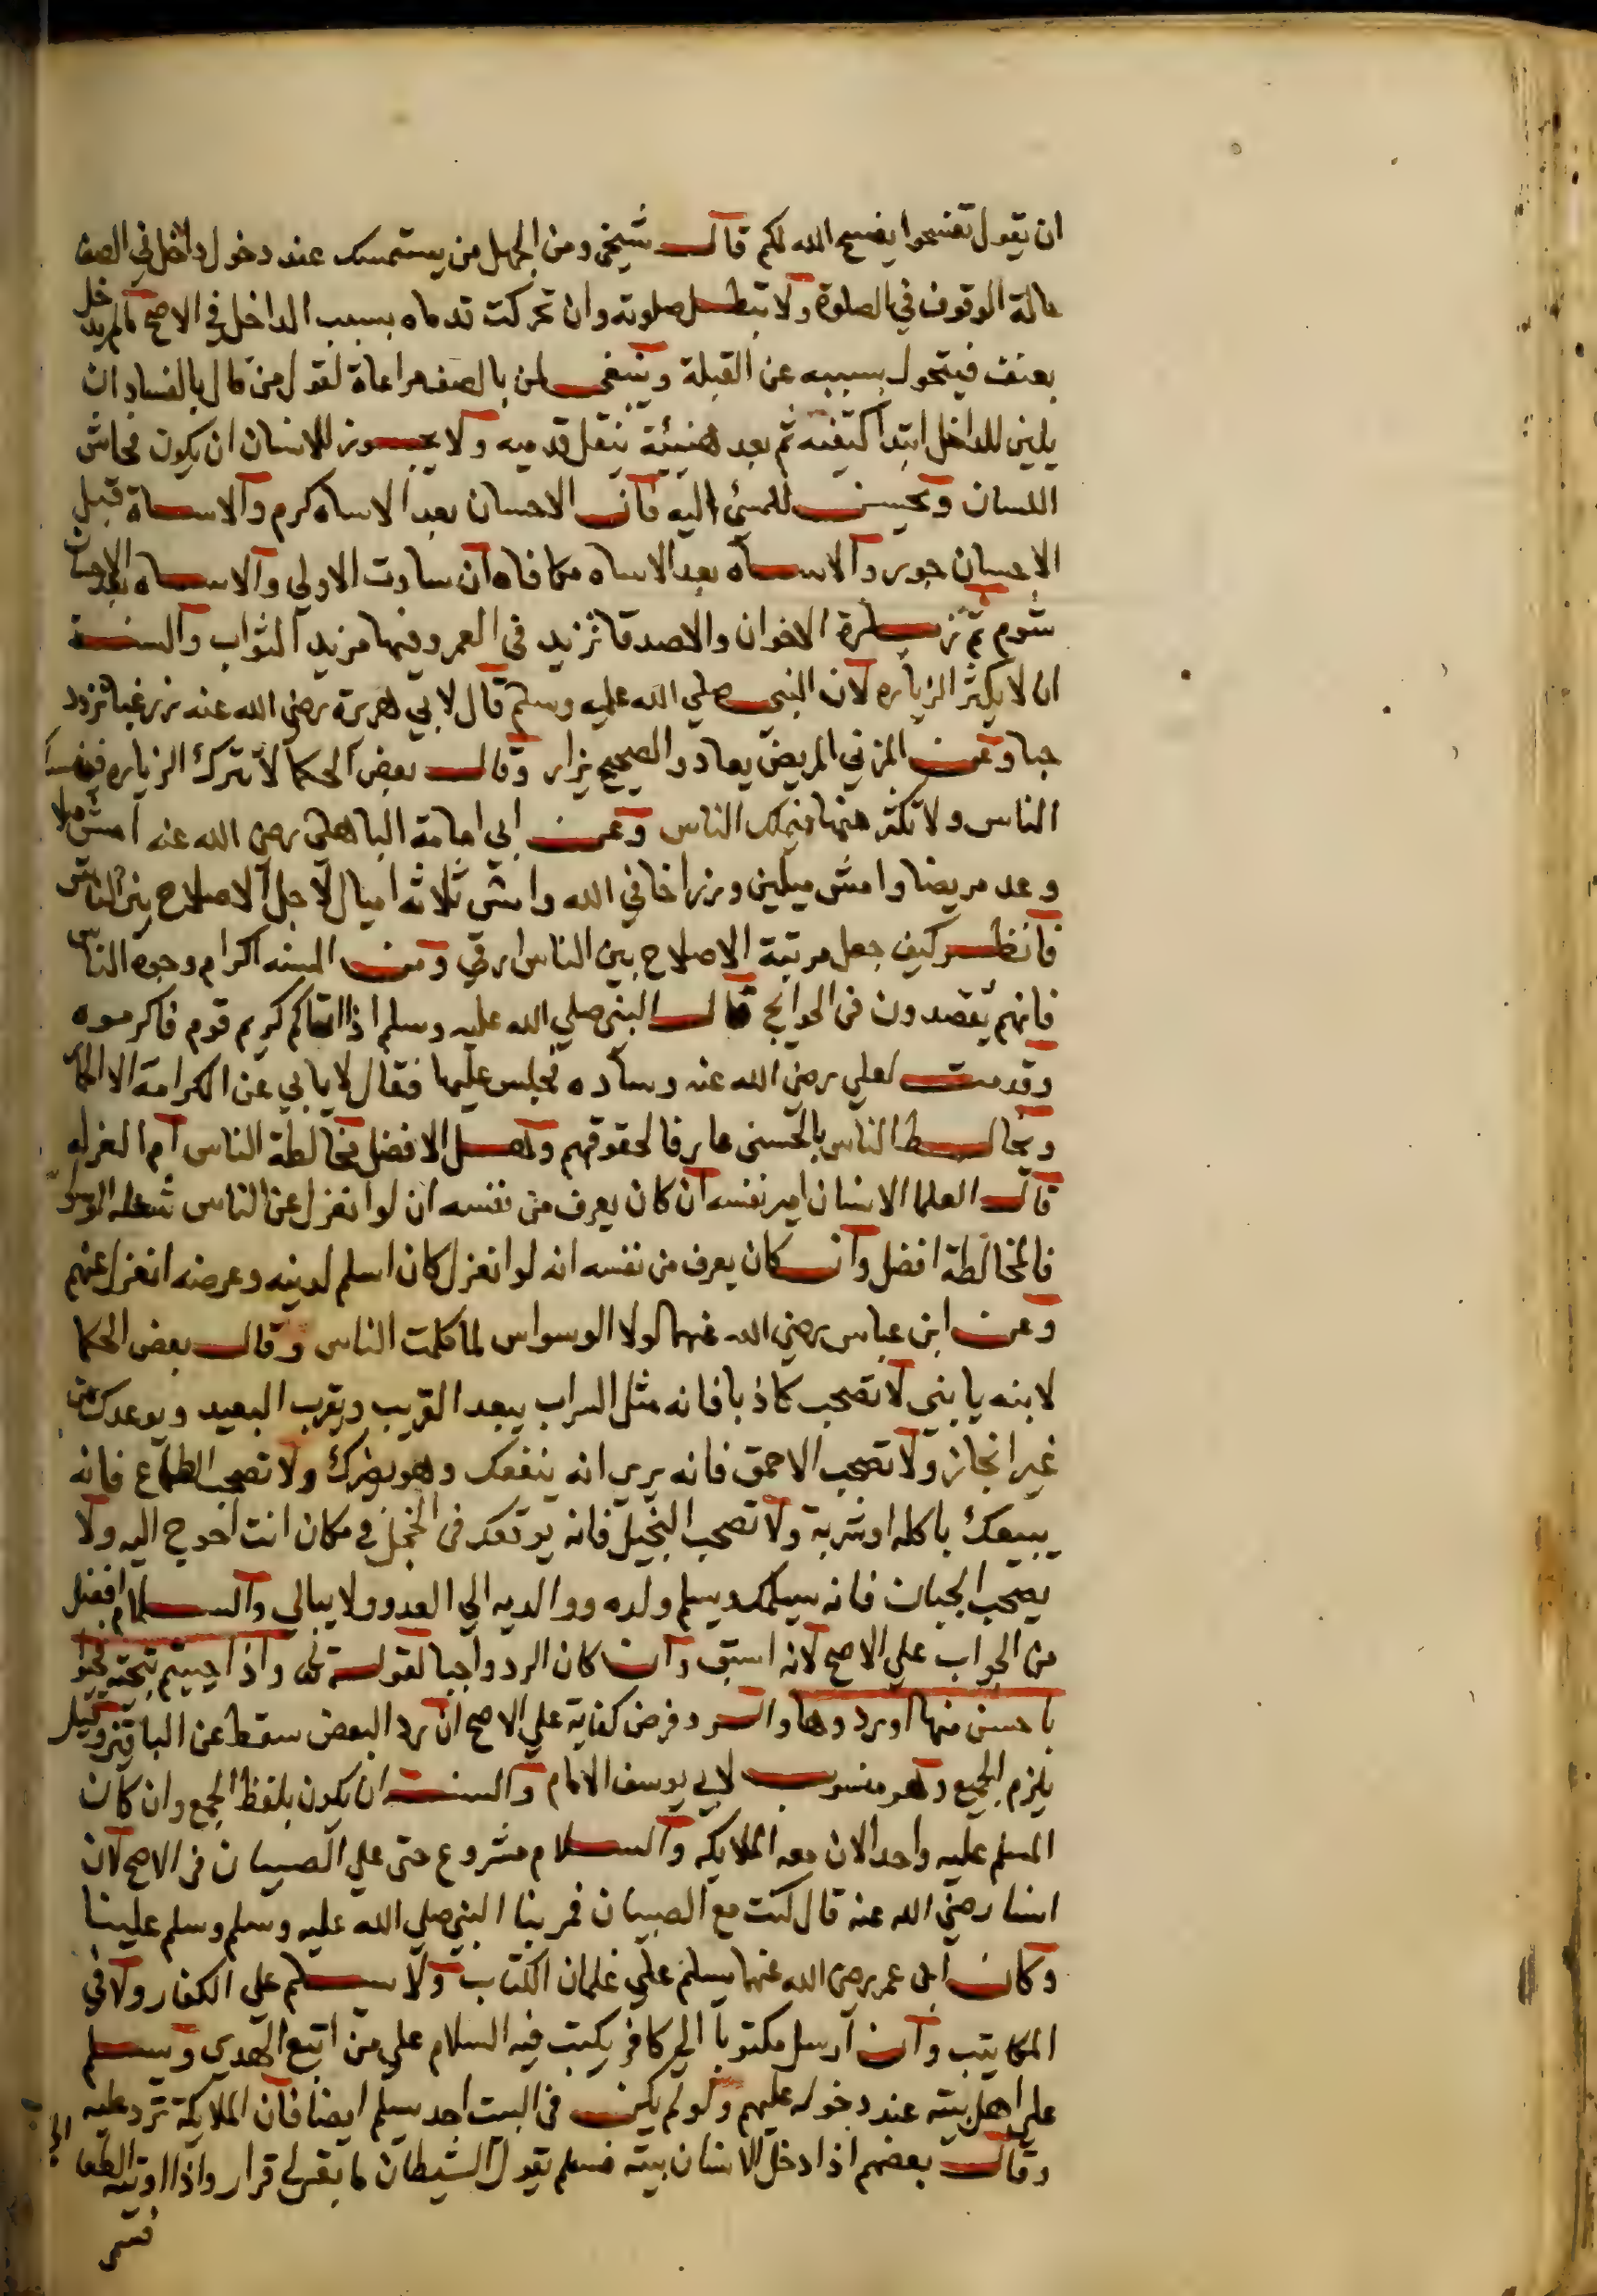 ان يقول تفسحوا يفسح الله لكم قال شيخي ومن الجهل من يستمسك عند دخول داخل في الصف
حالة الوقوف في الصلوة ولا تبطل صلوته وان تحركت قدماه بسبب الداخل في الاصح مالم يدخل
بعنف فيتحول بسببه عن القبلة وينبغي لمن بالصف مراعاة لقول من قال بالفساد ان
يلين للداخل ابتدا كتفه ثم بعد هنيئة ينقل قدميه ولا يجوز للانسان ان يكون فحاش
اللسان ويحسن للمسئ اليه فان الاحسان بعد الاساه كرم والاساة قبل
الاحسان جور والاساه بعد الاساه مكافاه ان ساوت الاولي والاساه بعد الاحسان
شوم ثم زيارة الاخوان والاصدقا تزيد في العمر وفيها مزيد الثواب والسنة
ان لا يكثر الزياره لان النبي صلي الله عليه وسلم قال لابي هريرة رضي الله عنه زر غبا تزدد
حبا وعن المزني المريض يعاد والصحيح يزار وقال بعض الحكما لا تترك الزياره فينساك
الناس ولا تكثر منها فيملك الناس وعن ابي امامة الباهلي رضي الله عنه امش ميلا
وعد مريضا وامش ميلين وزر اخا في الله وامش ثلاثه اميال لاجل الاصلاح بين الناس
فانظر كيف جعل مرتبة الاصلاح بين الناس ارقي ومن السنه اكرام وجوه الناس
فانهم يقصدون في الحوايج قال النبي صلي الله عليه وسلم اذا اتاكم كريم قوم فاكرموه
وقدمت لعلي رضي الله عنه وساده فجلس عليها فقال لا يابي عن الكرامة الا الحمار
ويخالط الناس بالحسني عارفا لحقوقهم وهل الافضل مخالطة الناس ام العزله
قال العلما الانسان امير نفسه ان كان يعرف من نفسه ان لو انعزل عن الناس شغله الوسواس
فالمخالطة افضل وان كان يعرف من نفسه انه لو انعزل كان اسلم لدينه وعرضه انعزل عنهم
وعن ابن عباس رضي الله عنهما لولا الوسواس لما كلمت الناس وقال بعض الحكما
لابنه يا بني لا تصحب كاذبا فانه مثل السراب يبعد القريب ويقرب البعيد ويوعدك من
غير انجاز ولا تصحب الاحمق فانه يري انه ينفعك وهو يضرك ولا تصحب الطماع فانه
يبيعك باكله او شربة ولا تصحب البخيل فانه يوقعك في الخجل في مكان انت احوج اليه ولا
يصحب الجبان فانه يسلمك ويسلم ولده ووالديه الي العدو ولا يبالي والسلام افضل
من الجواب علي الاصح لانه اسبق وان كان الرد واجبا لقوله تعالي واذا حييتم بتحية فحيوا
باحسن منها او ردوها والرد فرض كفاية علي الاصح ان رد البعض سقط عن الباقين وقيل
يلزم الجميع وهو منسوب لابي يوسف الامام والسنة ان يكون بلفظ الجمع وان كان
المسلم عليه واحدا لان معه الملايكه والسلام مشروع حتي علي الصبيان في الاصح لان
انسا رضي الله عنه قال كنت مع الصبيان فمر بنا النبي صلي الله عليه وسلم وسلم علينا
وكان ابن عمر رضي الله عنهما يسلم علي غلمان الكتاب ولا يسلم علي الكفار ولا في
المكاتيب وان ارسل مكتوبا الي كافر يكتب فيه السلام علي من اتبع الهدي ويسلم
علي اهل بيته عند دخوله عليهم ولو لم يكن في البيت احد يسلم ايضا فان الملايكة ترد عليه
وقال بعضهم اذا دخل الانسان بيته فسلم يقول الشيطان ما بقي لي قرار واذا اوتي الي الطعام
فسمي